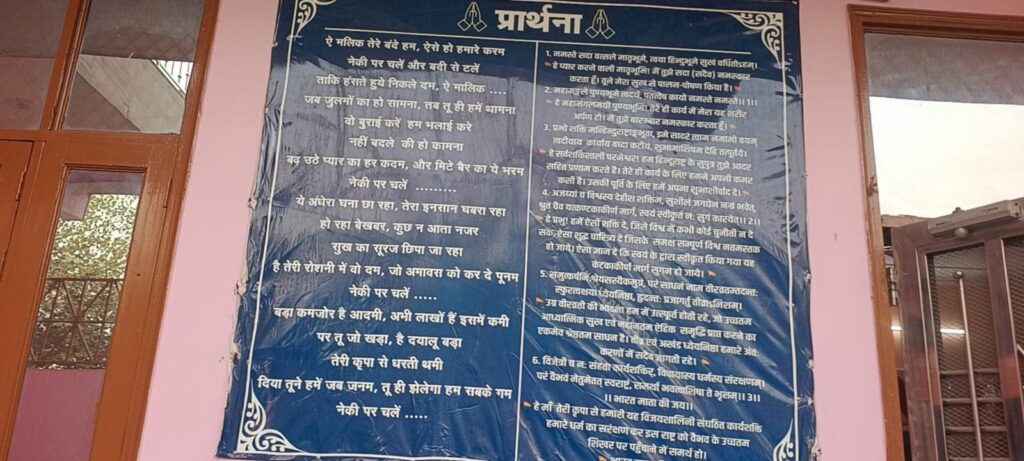 प्रार्थना
ऐ मलिक तेरे बंदे हम, ऐसे हो हमारे करम
नेकी पर चलें और बदी से टलें
ताकि हंसते हुये निकले दम, ऐ मालिक ....
जब जुल्मों का हो सामना, तब तू ही हमें थामना
वो बुराई करें हम भलाई करे
नहीं बदले की हो कामना
बढ़ उठे प्यार का हर कदम, और मिटे बैर का ये भरम
नेकी पर चलें .........
ये अंधेरा घना छा रहा, तेरा इनसान घबरा रहा
हो रहा बेखबर, कुछ न आता नजर
सुख का सूरज छिपा जा रहा
है तेरी रोशनी में वो दम, जो अमावस को कर दे पूनम
नेकी पर चलें .....
बड़ा कमजोर है आदमी, अभी लाखों हैं इसमें कमी
पर तू जो खड़ा, है दयालू बड़ा
तेरी कृपा से धरती थमी
दिया तूने हमें जब जनम, तू ही झेलेगा हम सबके गम
नेकी पर चलें .....
1. नमस्ते सदा वत्सले मातृभूमे, त्वया हिन्दुभूमे सुखं वर्धितोऽहम्।
हे प्यार करने वाली मातृभूमि! में तुझे सदा (सदैव) नमस्कार
करता हूँ। तूने मेरा सुख से पालन-पोषण किया है।
2. महामङ्गले पुण्यभूमे त्वदर्थे, पतत्वेष कायो नमस्ते नमस्ते।।1।।
हे महामंगलमयी पुण्यभूमि! तेरे ही कार्य में मेरा यह शरीर
अर्पण हो। में तुझे बारम्बार नमस्कार करता हूँ।
3. प्रभो शक्ति मन्हिन्दुराष्ट्राङ्गभूता, इमे सादरं त्वाम नमामो वयम्
त्वदीयाय कार्याय बध्दा कटीयं, शुभामाशिषम देहि तत्पूर्तये।
हे सर्वशक्तिशाली परमेश्वर! हम हिन्दुराष्ट्र के सुपुत्र तुझे आदर
सहित प्रणाम करते है। तेरे ही कार्य के लिए हमने अपनी कमर
कसी है। उसकी पूर्ति के लिए हमें अपना शुभाशीर्वाद दे।
4. अजय्यां च विश्वस्य देहीश शक्तिम, सुशीलं जगद्येन नम्रं भवेत्,
श्रुतं चैव यत्कण्टकाकीर्ण मार्गं, स्वयं स्वीकृतं नः सुगं कारयेत्।।2।।
हे प्रभु! हमें ऐसी शक्ति दे, जिसे विश्व में कभी कोई चुनौती न दे
सके, ऐसा शुद्ध चारित्र्य दे जिसके समक्ष सम्पूर्ण विश्व नतमस्तक
हो जाये। ऐसा ज्ञान दे कि स्वयं के द्वारा स्वीकृत किया गया यह
कंटकाकीर्ण मार्ग सुगम हो जाये।
5. समुत्कर्षनिःश्रेयसस्यैकमुग्रं, परं साधनं नाम वीरव्रतम्तदन्तः
स्फुरत्वक्षया ध्येयनिष्ठा, हृदन्तः प्रजागर्तु तीव्राऽनिशम्।
उग्र वीरव्रती की भावना हम में उत्स्फूर्त होती रहे, जो उच्चतम
आध्यात्मिक सुख एवं महानतम ऐहिक समृद्धि प्राप्त करने का
एकमेव श्रेष्ठतम साधन है। तीव्र एवं अखंड ध्येयनिष्ठा हमारे अंतः
करणों में सदैव जागती रहे।
6. विजेत्री च नः संहता कार्यशक्तिर्, विधायास्य धर्मस्य संरक्षणम्।
परं वैभवं नेतुमेतत् स्वराष्ट्रं, समर्था भवत्वाशिषा ते भृशम्।।3।।
।। भारत माता की जय।।
हे माँ तेरी कृपा से हमारी यह विजयशालिनी संघठित कार्यशक्ति
हमारे धर्म का सरंक्षण कर इस राष्ट्र को वैभव के उच्चतम
शिखर पर पहुँचाने में समर्थ हो।